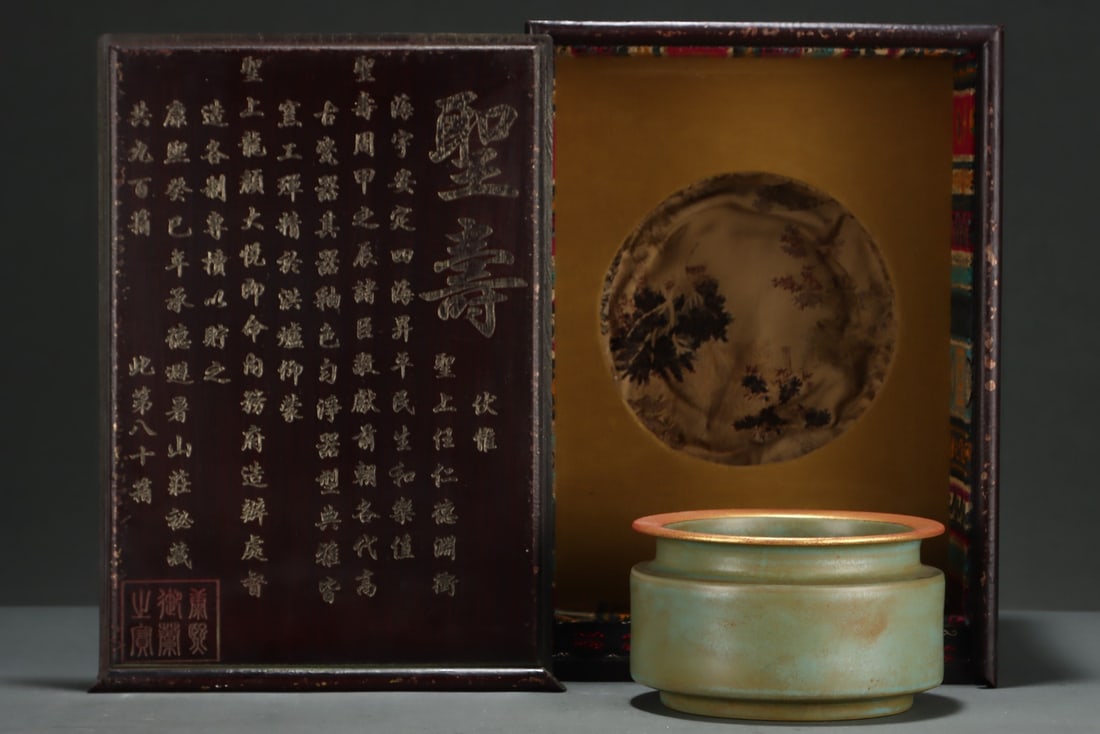 聖壽
伏惟
聖上恆仁德淵衡
海宇安定四海昇平民生和樂值
聖壽周甲之辰諸臣敬獻前朝各代高
古瓷器其器釉色勻淨器型典雅皆
窯工殫精於洪爐仰蒙
聖上龍顏大悅即命內務府造辦處督
造各制專櫝以貯之
康熙癸巳年承德避暑山莊祕藏
共九百箱 此第八十箱
康熙
御藥
之寶